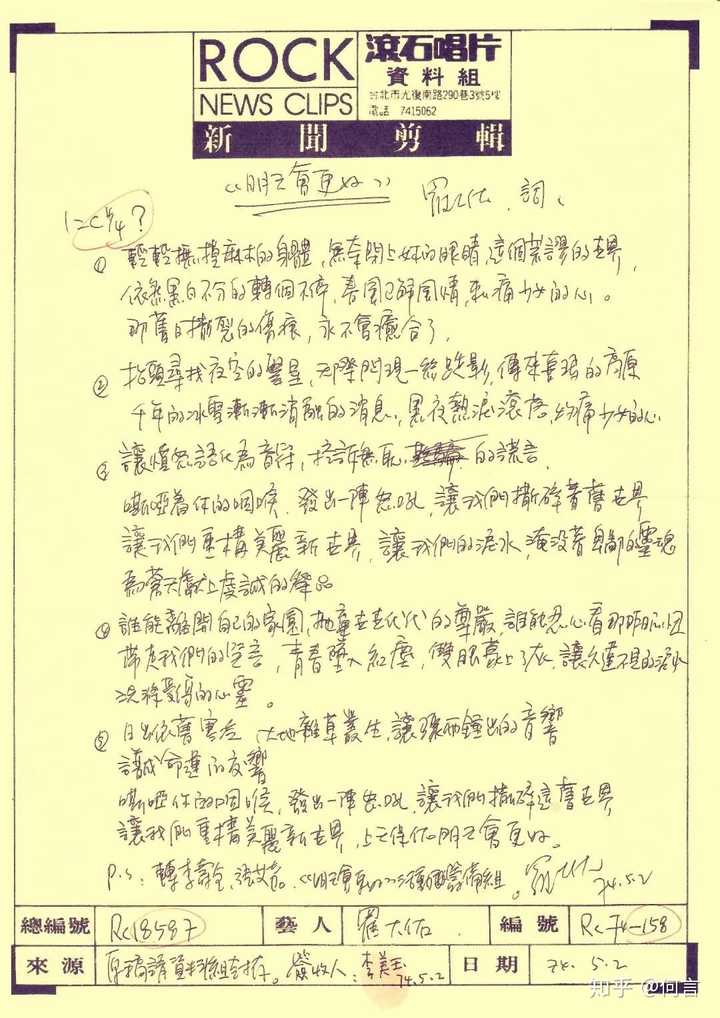 ROCK
NEWS CLIPS
滾石唱片
資料組
台北市光復南路290巷3號5樓
電話 7415062
新聞剪輯
《明天會更好》 羅大佑.詞.
1=C 4/4?
① 輕輕撫摸麻木的身體,無奈閉上妳的眼睛,這個荒謬的世界,
依然黑白不分的轉個不停,春風已解風情,刺痛少女的心。
那舊日撕裂的傷痕,永不會癒合了,
② 抬頭尋找夜空的雙星,天際閃現一絲跌影,傳來哀張的高原
千年的冰雪漸漸消融的消息,黑夜熱淚滾落,灼痛少女的心.
③ 讓憤怒語化為音符,控訴無恥 的謊言,
嘶啞着你的咽喉,發出一陣怒吼,讓我們撕碎着舊世界
讓我們重構美麗新世界,讓我們的淚水,淹没著卑鄙的靈魂
為蒼天獻上虔誠的祭品
④ 誰能離開自己的家園,拋棄世世代代的尊嚴,誰能忍心看那昨日
帶走我們的 言,青春墜入紅塵,雙眼蒙上了灰,讓久違不見的淚水
洗滌受傷的心靈。
⑤ 日出依舊寒冷 大地雜草叢生,讓 鐘出的音響
譜成命運的反響
嘶啞你的咽喉,發出一陣怒吼,讓我們撕碎這舊世界
讓我們重構美麗新世界,上天保佑明天會更好。
P.S:轉李壽全,張艾嘉.《明天會更好》 籌備組。羅大佑 74.5.2
總編號 Rc18597 藝人 羅大佑 編號 Rc74-158
來源 原稿請資料組查存。簽收人:李美玉 74.5.2 日期 74.5.2
知乎 @何言